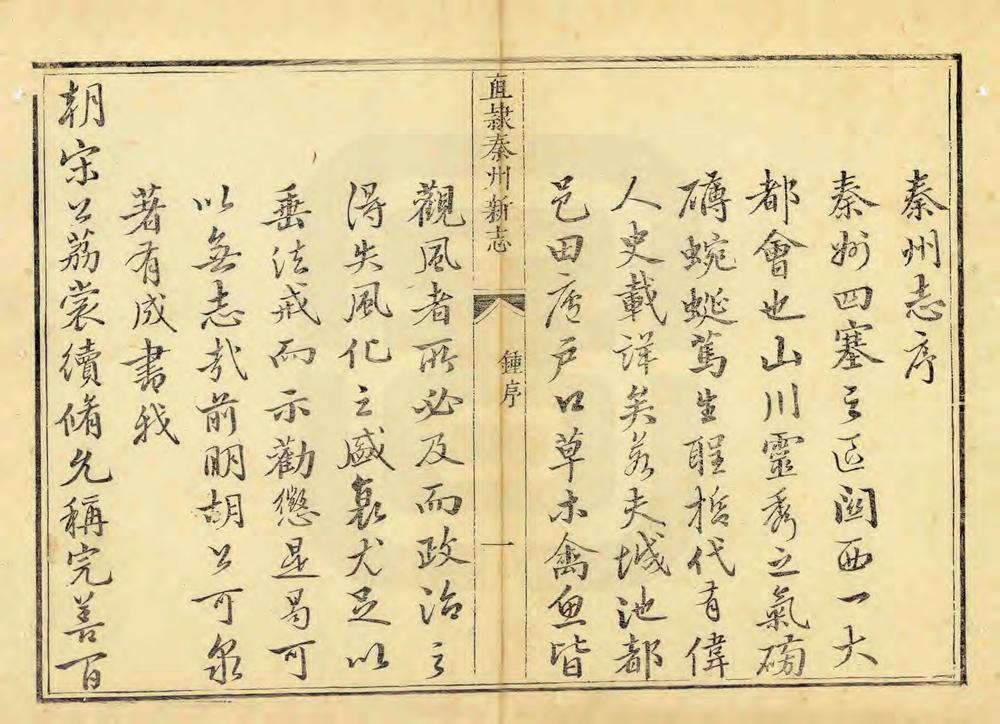 秦州志序
秦州四塞之區關西一大
都會也山川靈秀之氣磅
礡蜿蜒篤生聖哲代有偉
人史載詳矣若夫城池都
邑田廬戶口草木禽魚皆
直隸秦州新志
鍾序
一
觀風者所必及而政治之
得失風化之盛衰尤足以
垂法戒而示勸懲是曷可
以無志哉前明胡公可泉
著有成書我
朝宋公荔裳續脩允稱完善百